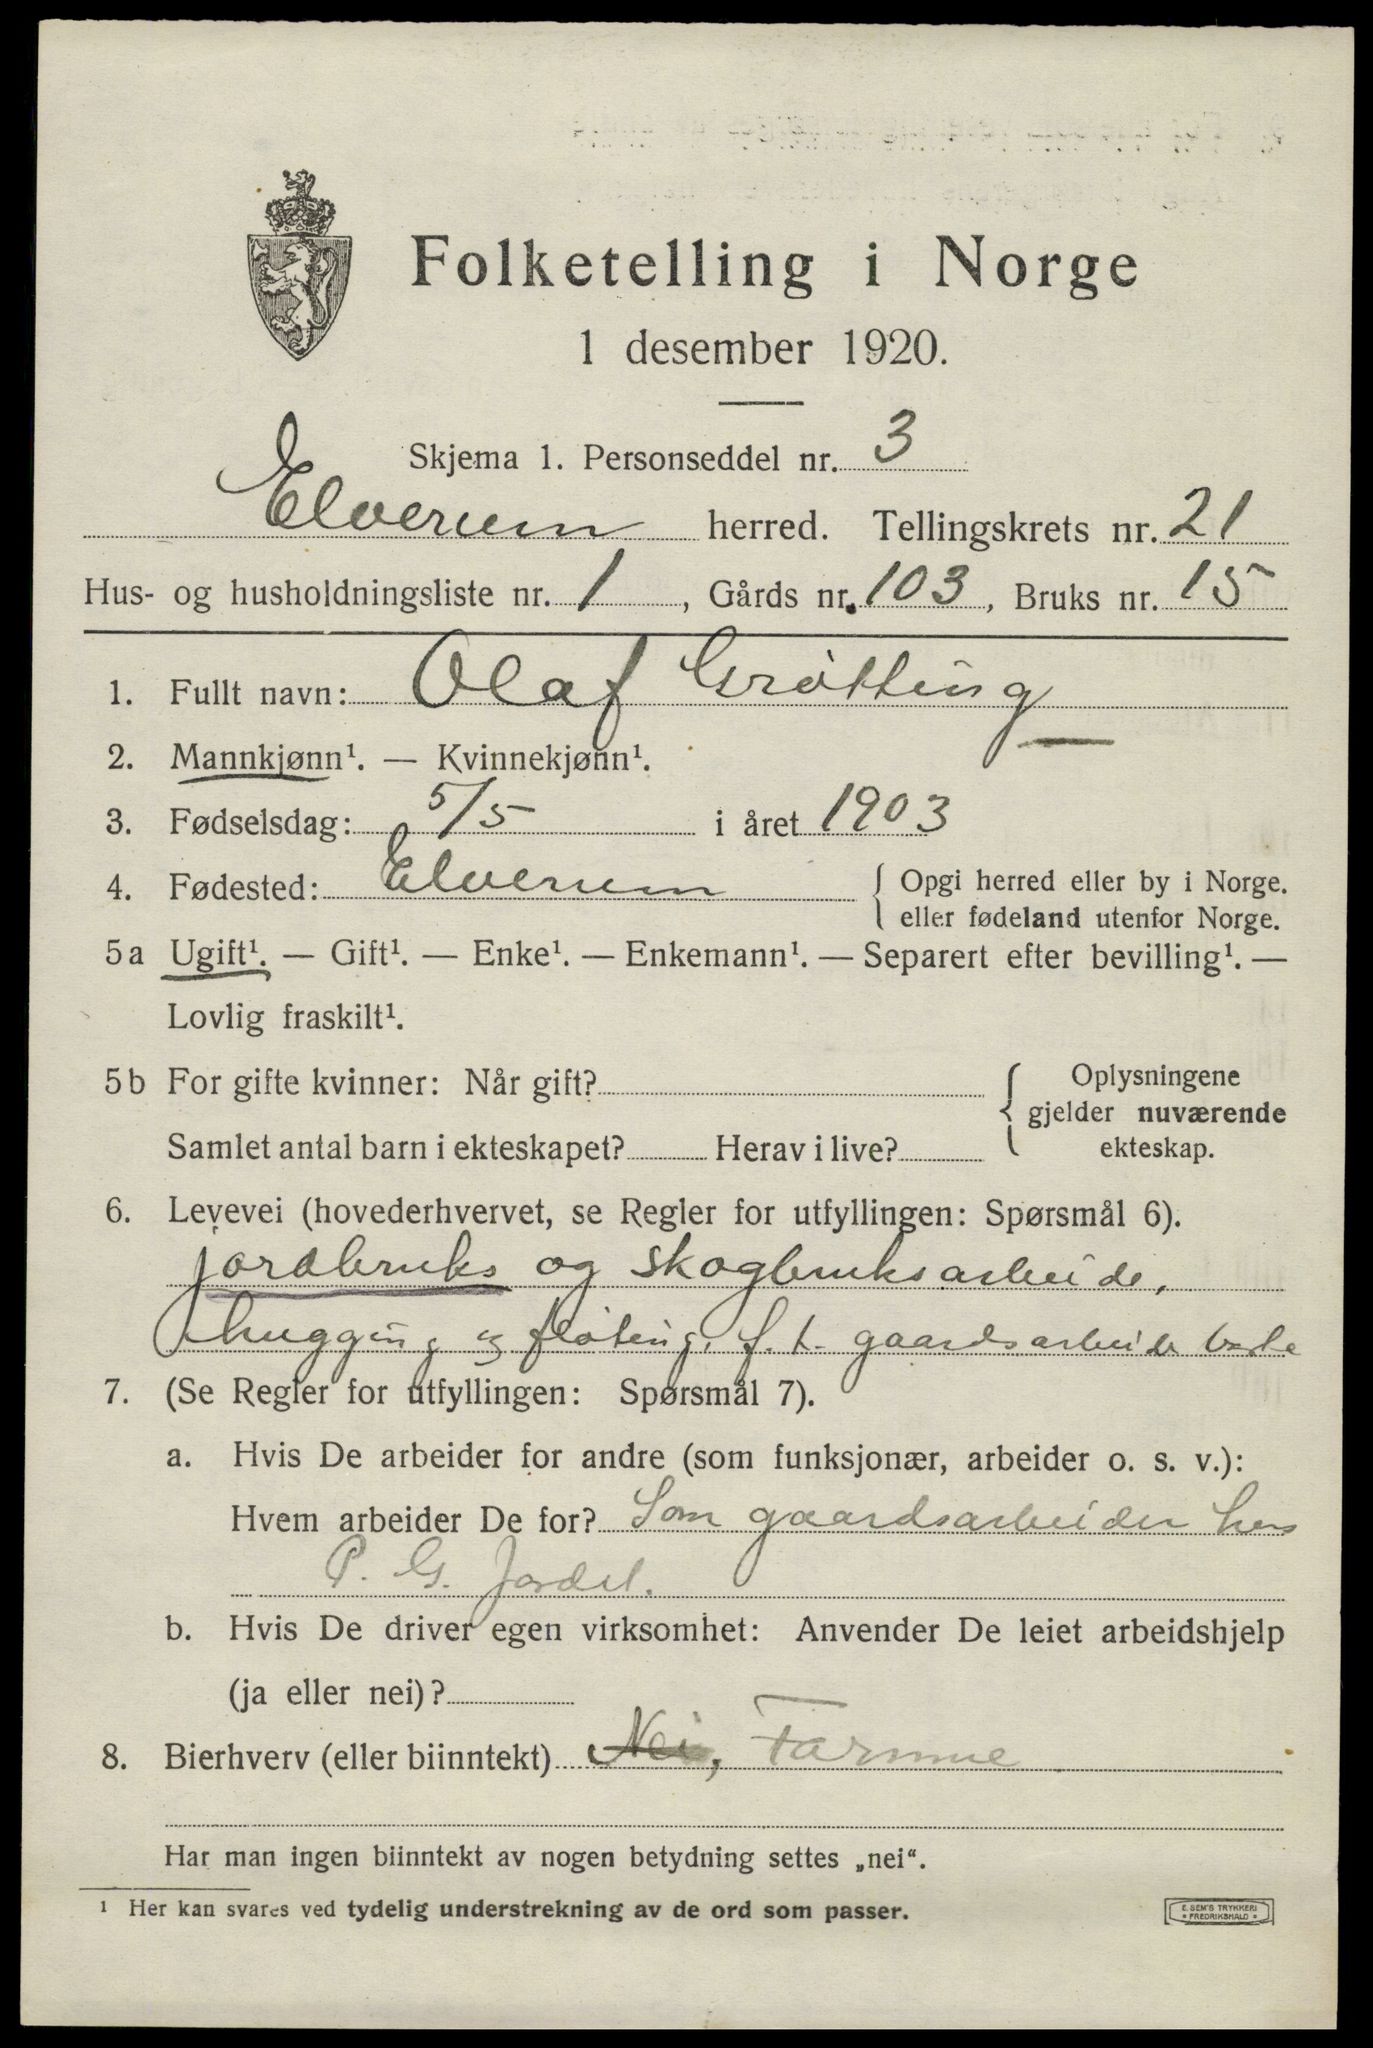 Folketelling i Norge
1 desember 1920.
Skjema 1. Personseddel nr. 3
Elverum herred. Tellingskrets nr. 21
Hus- og husholdningsliste nr. 1, Gårds nr. 103, Bruks nr. 15
1. Fullt navn: Olaf Grøtting
2. Mannkjønn¹. — Kvinnekjønn¹.
3. Fødselsdag: 5/5 i året 1903
4. Fødested: Elverum { Opgi herred eller by i Norge.
eller fødeland utenfor Norge.
5a Ugift¹. — Gift¹. — Enke¹. — Enkemann¹. — Separert efter bevilling¹. —
Lovlig fraskilt¹.
5b For gifte kvinner: Når gift? { Oplysningene
gjelder nuværende
Samlet antal barn i ekteskapet? Herav i live? ekteskap.
6. Levevei (hovederhvervet, se Regler for utfyllingen: Spørsmål 6).
jordbruks og skogbruksarbeide,
hugging og fløting, f. t. gaardsarbeide
7. (Se Regler for utfyllingen: Spørsmål 7).
a. Hvis De arbeider for andre (som funksjonær, arbeider o. s. v.):
Hvem arbeider De for? Som gaardsarbeider hos
P. G. Jordet.
b. Hvis De driver egen virksomhet: Anvender De leiet arbeidshjelp
(ja eller nei)?
8. Bierhverv (eller biinntekt) Nei, Formue
Har man ingen biinntekt av nogen betydning settes „nei“.
¹ Her kan svares ved tydelig understrekning av de ord som passer.
E. SEM'S TRYKKERI
• FREDRIKSHALD •